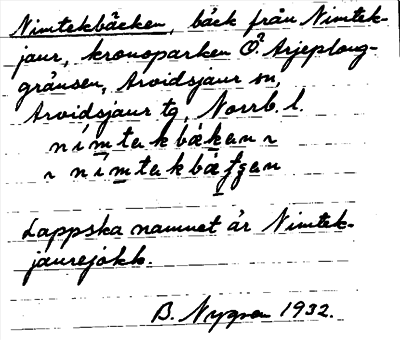 Nimtekbäcken, bäck från Nimtek-
jaur, kronoparken Ö. Arjeploug-
gränsen, Arvidsjaur sn,
Arvidsjaur tg, Norrb. l.
nímtakbäkan ~
~ nímtakbä
Lappska namnet är Nimtek-
jaurejokk.
B. Nygren 1932.